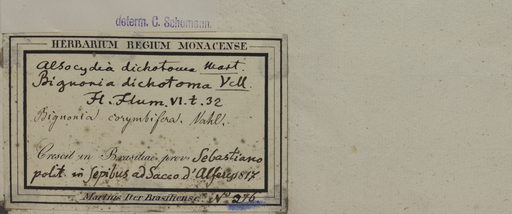 determ. C. Schumann.
HERBARIUM REGIUM MONACENSE
Alsocydia dichotoma Mart.
Bignonia dichotoma Vell.
Fl. Flum. VI. t. 32
Bignonia corymbifera Vahl.
Crescit in Brasiliae prov. Sebastiano
polit. in sepibus ad Sacco d' 1817
Martius Iter Brasiliense. No 276